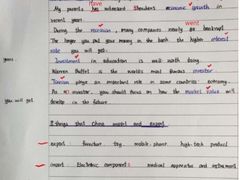 Have
My parents has witnessed Shenzhen's economic growth in
recent years.
went
During the recession, many companies nearly go bankrupt.
The longer you put your money in the bank, the higher interest
rate you will get.
years.
Investment in education is well worth doing.
Warren Buffet is the world's most famous investor
Tourism plays an important role in some countries' economy.
As an investor, you should focus on how the market value will
you will get
develop in the future.
8 things that China import and export
export furniture toy mobile phone high-tech product
import Electronic component medical apparatus and instrument